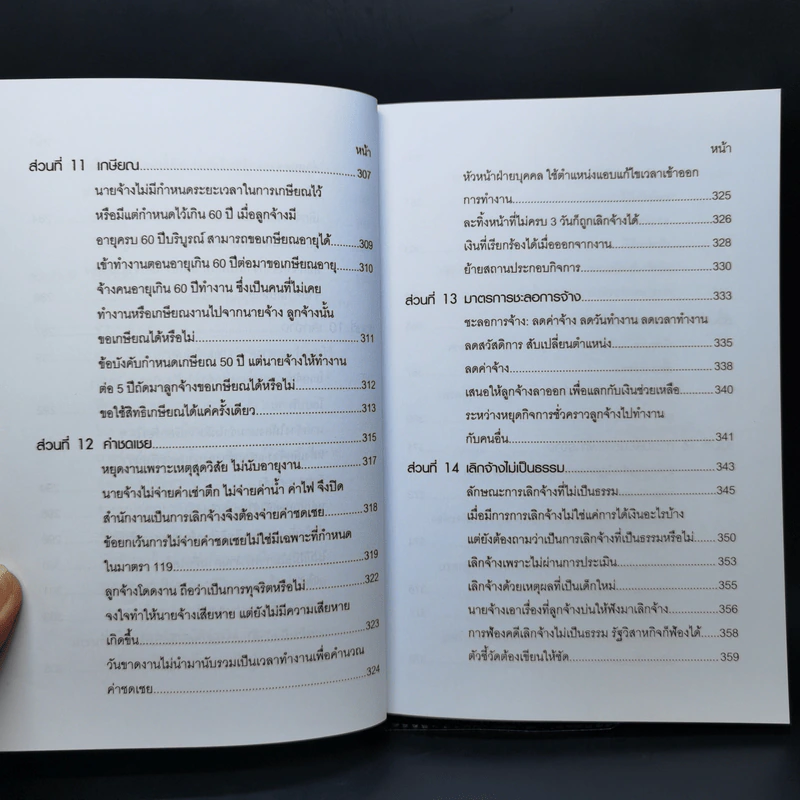 หน้า
ส่วนที่ 11 เกษียณ 307
นายจ้างไม่มีกำหนดระยะเวลาในการเกษียณไว้
หรือมีแต่กำหนดไว้เกิน 60 ปี เมื่อลูกจ้างมี
อายุครบ 60 ปีบริบูรณ์ สามารถขอเกษียณอายุได้ 309
เข้าทำงานตอนอายุเกิน 60 ปีต่อมาขอเกษียณอายุ 310
จ้างคนอายุเกิน 60 ปีทำงาน ซึ่งเป็นคนที่ไม่เคย
ทำงานหรือเกษียณงานไปจากนายจ้าง ลูกจ้างนั้น
ขอเกษียณได้หรือไม่ 311
ข้อบังคับกำหนดเกษียณ 50 ปี แต่นายจ้างให้ทำงาน
ต่อ 5 ปีถัดมาลูกจ้างขอเกษียณได้หรือไม่ 312
ขอใช้สิทธิเกษียณได้แค่ครั้งเดียว 313
ส่วนที่ 12 ค่าชดเชย 315
หยุดงานเพราะเหตุสุดวิสัย ไม่นับอายุงาน 317
นายจ้างไม่จ่ายค่าเช่าตึก ไม่จ่ายค่าน้ำ ค่าไฟ จึงปิด
สำนักงานเป็นการเลิกจ้างจึงต้องจ่ายค่าชดเชย 318
ข้อยกเว้นการไม่จ่ายค่าชดเชยไม่ใช่มีเฉพาะที่กำหนด
ในมาตรา 119 319
ลูกจ้างโดดงาน ถือว่าเป็นการทุจริตหรือไม่ 322
จงใจทำให้นายจ้างเสียหาย แต่ยังไม่มีความเสียหาย
เกิดขึ้น 323
วันขาดงานไม่นำมานับรวมเป็นเวลาทำงานเพื่อคำนวณ
ค่าชดเชย 324
หน้า
หัวหน้าฝ่ายบุคคล ใช้ตำแหน่งแอบแก้ไขเวลาเข้าออก
การทำงาน 325
ละทิ้งหน้าที่ไม่ครบ 3 วันก็ถูกเลิกจ้างได้ 326
เงินที่เรียกร้องได้เมื่อออกจากงาน 328
ย้ายสถานประกอบกิจการ 330
ส่วนที่ 13 มาตรการชะลอการจ้าง 333
ชะลอการจ้าง: ลดค่าจ้าง ลดวันทำงาน ลดเวลาทำงาน
ลดสวัสดิการ สับเปลี่ยนตำแหน่ง 335
ลดค่าจ้าง 338
เสนอให้ลูกจ้างลาออก เพื่อแลกกับเงินช่วยเหลือ 340
ระหว่างหยุดกิจการชั่วคราวลูกจ้างไปทำงาน
กับคนอื่น 341
ส่วนที่ 14 เลิกจ้างไม่เป็นธรรม 343
ลักษณะการเลิกจ้างที่ไม่เป็นธรรม 345
เมื่อมีการการเลิกจ้างไม่ใช่แค่การได้เงินอะไรบ้าง
แต่ยังต้องถามว่าเป็นการเลิกจ้างที่เป็นธรรมหรือไม่ 350
เลิกจ้างเพราะไม่ผ่านการประเมิน 353
เลิกจ้างด้วยเหตุผลที่เป็นเด็กใหม่ 355
นายจ้างเอาเรื่องที่ลูกจ้างบ่นให้ฟังมาเลิกจ้าง 356
การฟ้องคดีเลิกจ้างไม่เป็นธรรม รัฐวิสาหกิจก็ฟ้องได้ 358
ตัวชี้วัดต้องเขียนให้ชัด 359